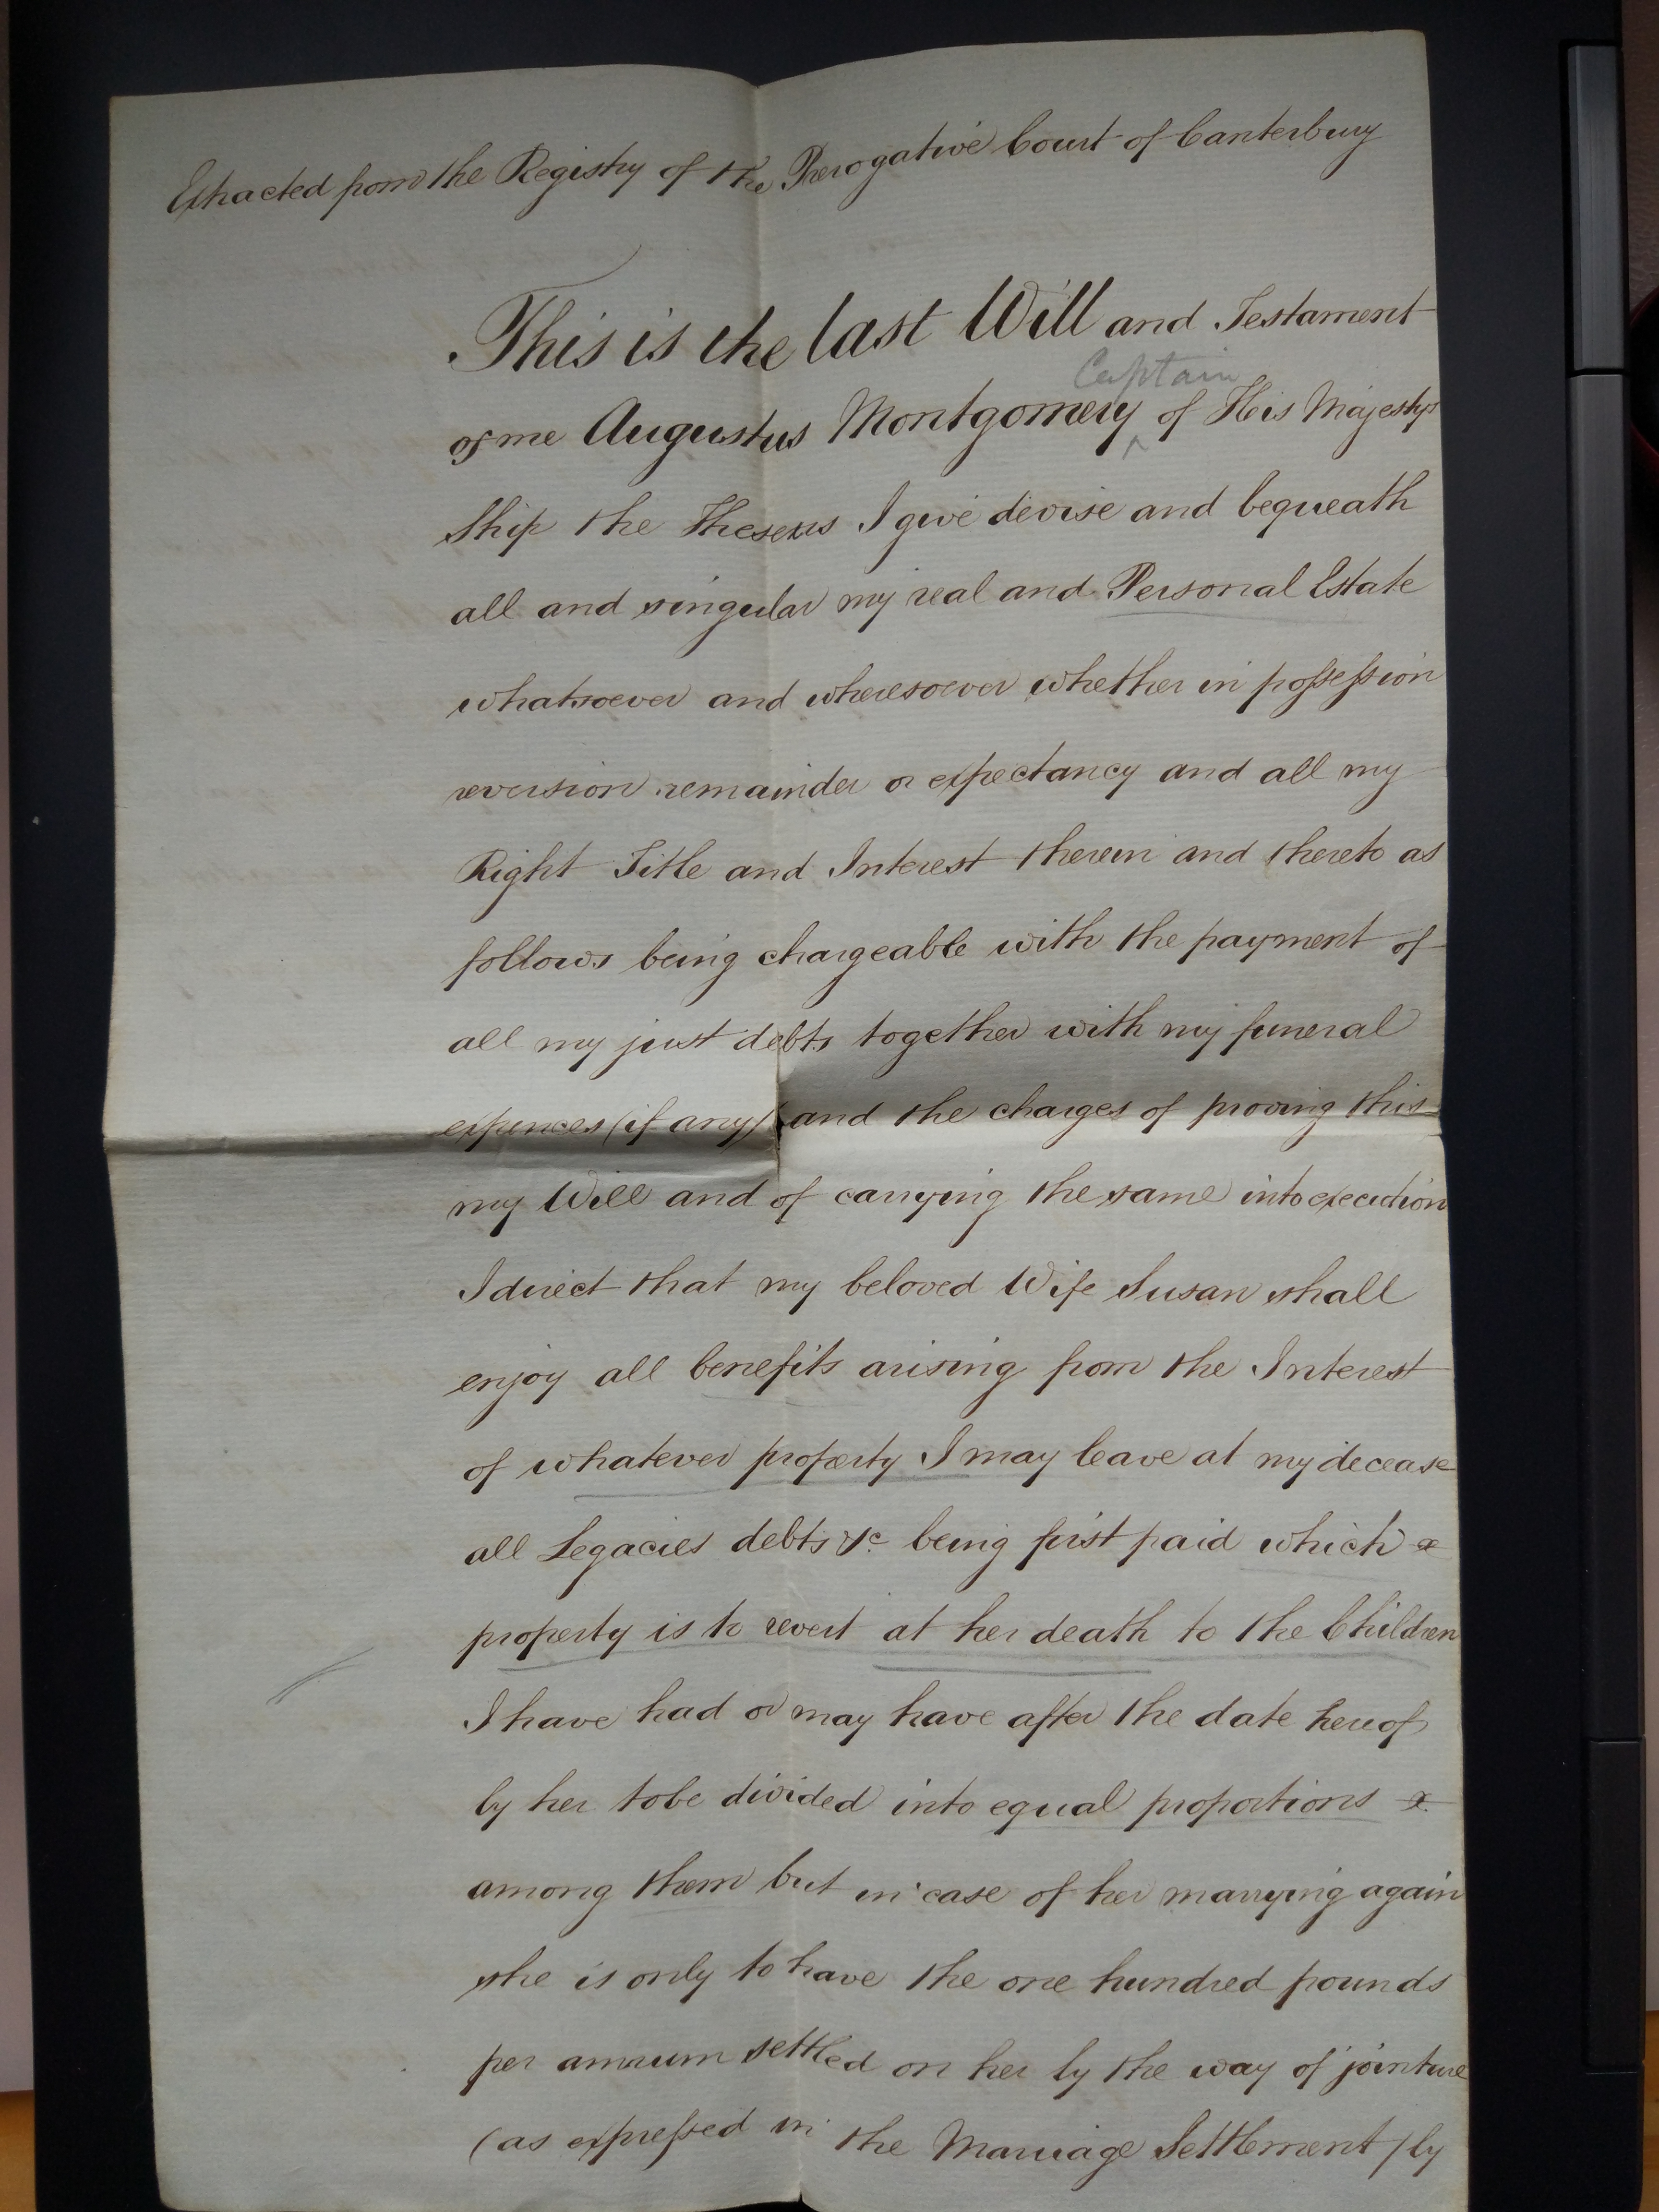 Extracted from the Registry of the Prerogative Court of Canterbury
This is the last Will and Testament
Captain
of me Augustus Montgomery ^ of His Majestys
Ship the Theseus I give devise and bequeath
all and singular my real and Personal Estate
whatsoever and wheresoever whether in possession
reversion remainder or expectancy and all my
Right Title and Interest therein and thereto as
follows being chargeable with the payment of
all my just debts together with my funeral
expences (if any) and the charges of proving this
my Will and of carrying the same into execution
I direct that my beloved Wife Susan shall
enjoy all benefits arising from the Interest
of whatever property I may leave at my decease
all Legacies debts &c being first paid which
property is to revert at her death to the Children
I have had or may have after the date hereof
by her to be divided into equal proportions
among them but in case of her marrying again
she is only to have the one hundred pounds
per annum settled on her by the way of jointure
(as expressed in the Marriage Settlement) by